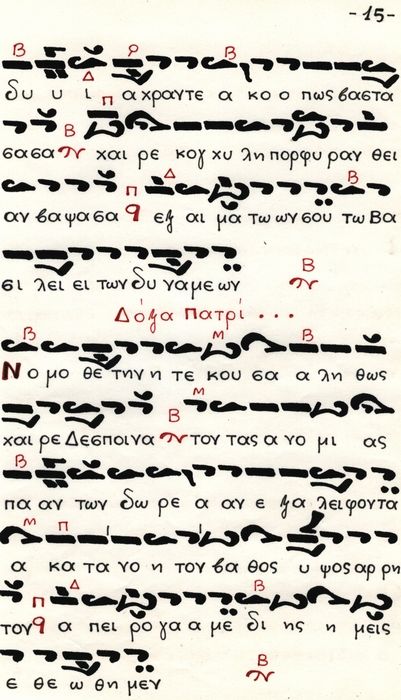 -15-
δυ υ ι αχραντε α κο ο πως βαστα
σασα χαι ρε κογ χυ λη πορφυ ραν θει
αν βα ψα σα εξ αι μα τω ων σου τω Βα
σι λει ει των δυ να με ων
Δόξα Πατρί ...
Νο μο θε την η τε κου σα α λη θως
χαι ρε Δεσποινα τον τας α νο μι ας
πα αν των δω ρε α αν ε ξα λειφοντα
α κα τα νο η τον βα θος υ ψος αρ ρη
τον α πει ρο γα α με δι ης η μεις
ε θε ω θη μεν